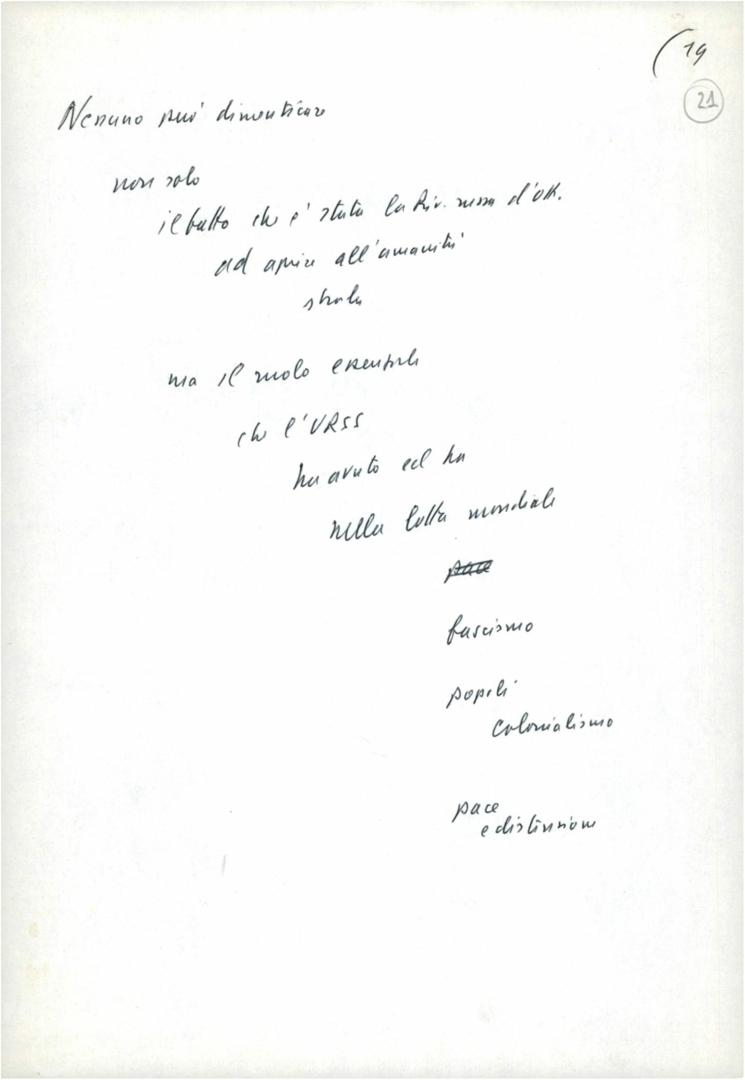 (19
21
Nessuno può dimenticare
non solo
il fatto che è stata la Riv. russa d'Ott.
ad aprire all'umanità
strada
ma il ruolo essenziale
che l'URSS
ha avuto ed ha
nella lotta mondiale
pace
fascismo
popoli
colonialismo
pace
e distensione